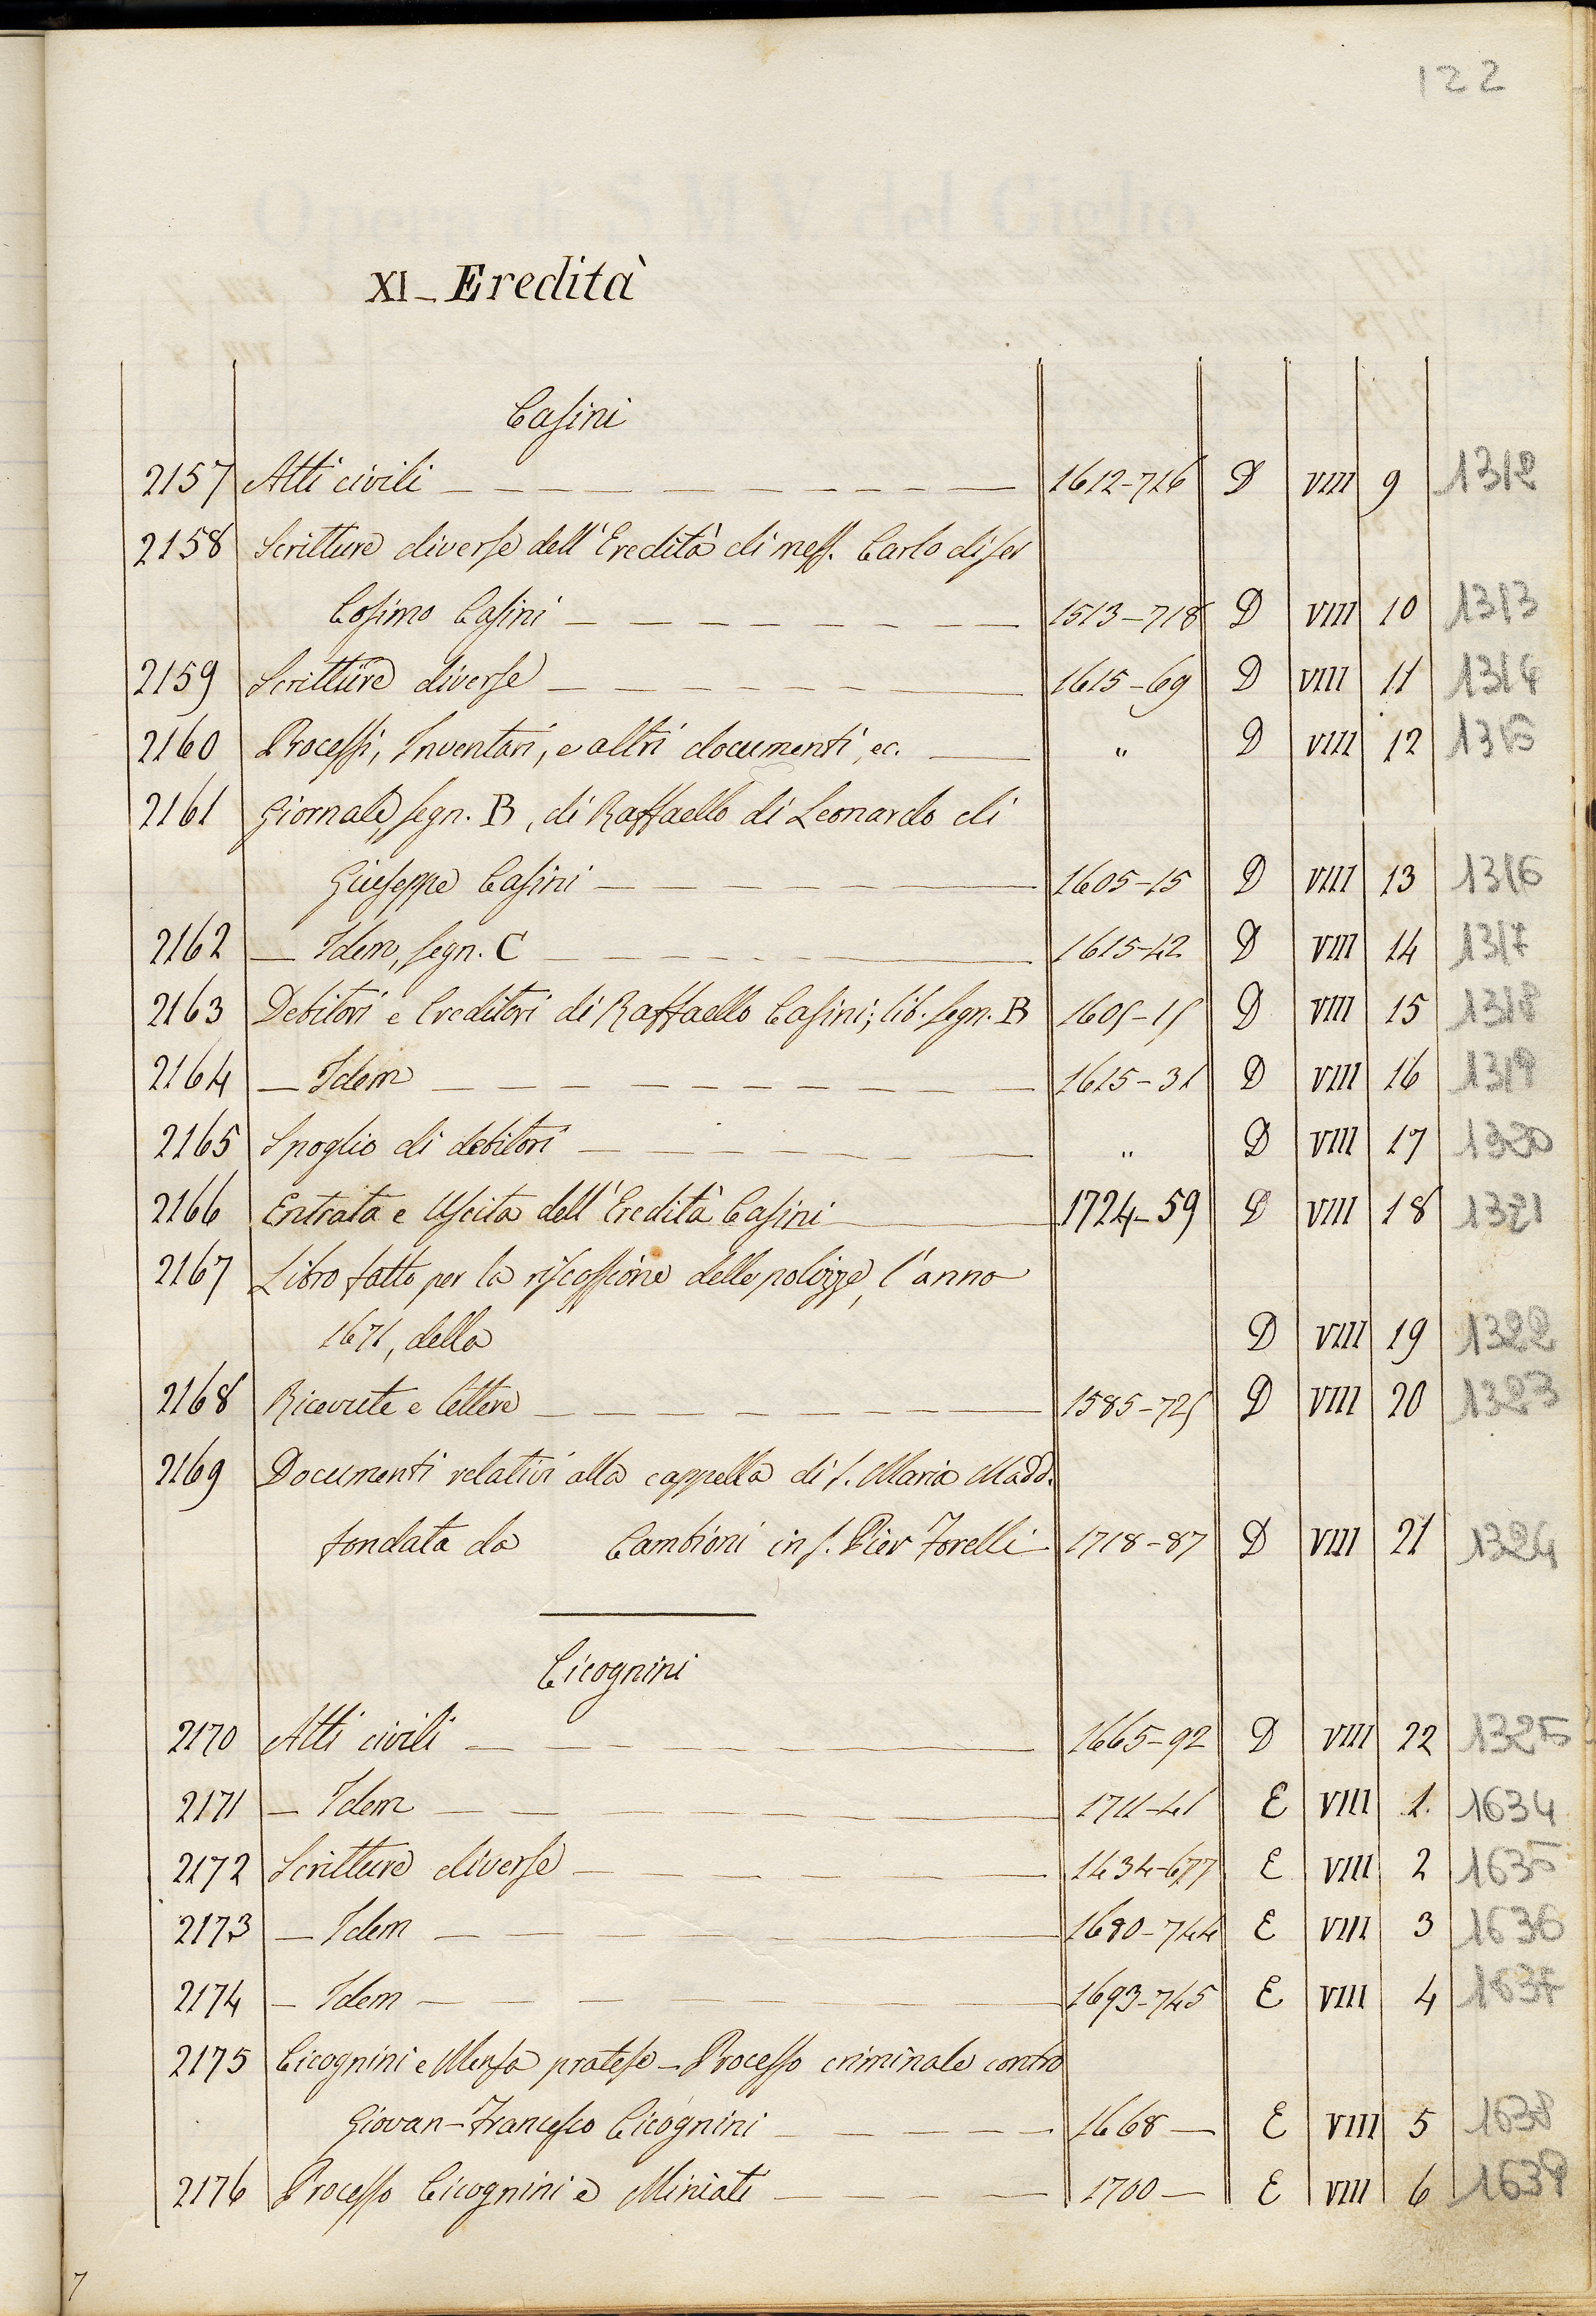 122
XI_ Eredità
Casini
2157 Atti civili 1612-716 D VIII 9 1312
2158 Scritture diverse dell'Eredità di mess. Carlo di ser
Cosimo Casini 1513-718 D VIII 10 1313
2159 Scritture diverse 1615-69 D VIII 11 1314
2160 Processi, Inventari, e altri documenti, ec. " D VIII 12 1315
2161 Giornale, segn. B, di Raffaello di Leonardo di
Giuseppe Casini 1605-15 D VIII 13 1316
2162 — Idem, segn. C 1615-42 D VIII 14 1317
2163 Debitori e Creditori di Raffaello Casini; lib. segn. B 1605-15 D VIII 15 1318
2164 — Idem 1615-31 D VIII 16 1319
2165 Spoglio di debitori " D VIII 17 1320
2166 Entrata e Uscita dell'Eredità Casini 1724-59 D VIII 18 1321
2167 Libro fatto per la riscossione delle polizze, l'anno
1671, della D VIII 19 1322
2168 Ricevute e lettere 1585-725 D VIII 20 1323
2169 Documenti relativi alla cappella di S. Maria Madd.
fondata da Cambioni in S. Pier Forelli 1718-87 D VIII 21 1324
Cicognini
2170 Atti civili 1665-92 D VIII 22 1325
2171 — Idem 1711-41 E VIII 1. 1634
2172 Scritture diverse 1434-677 E VIII 2 1635
2173 — Idem 1680-744 E VIII 3 1636
2174 — Idem 1693-745 E VIII 4 1637
2175 Cicognini e Mensa pratese — Processo criminale contro
Giovan-Francesco Cicognini 1668 — E VIII 5 1638
2176 Processo Cicognini e Miniati 1700 — E VIII 6 1639
7